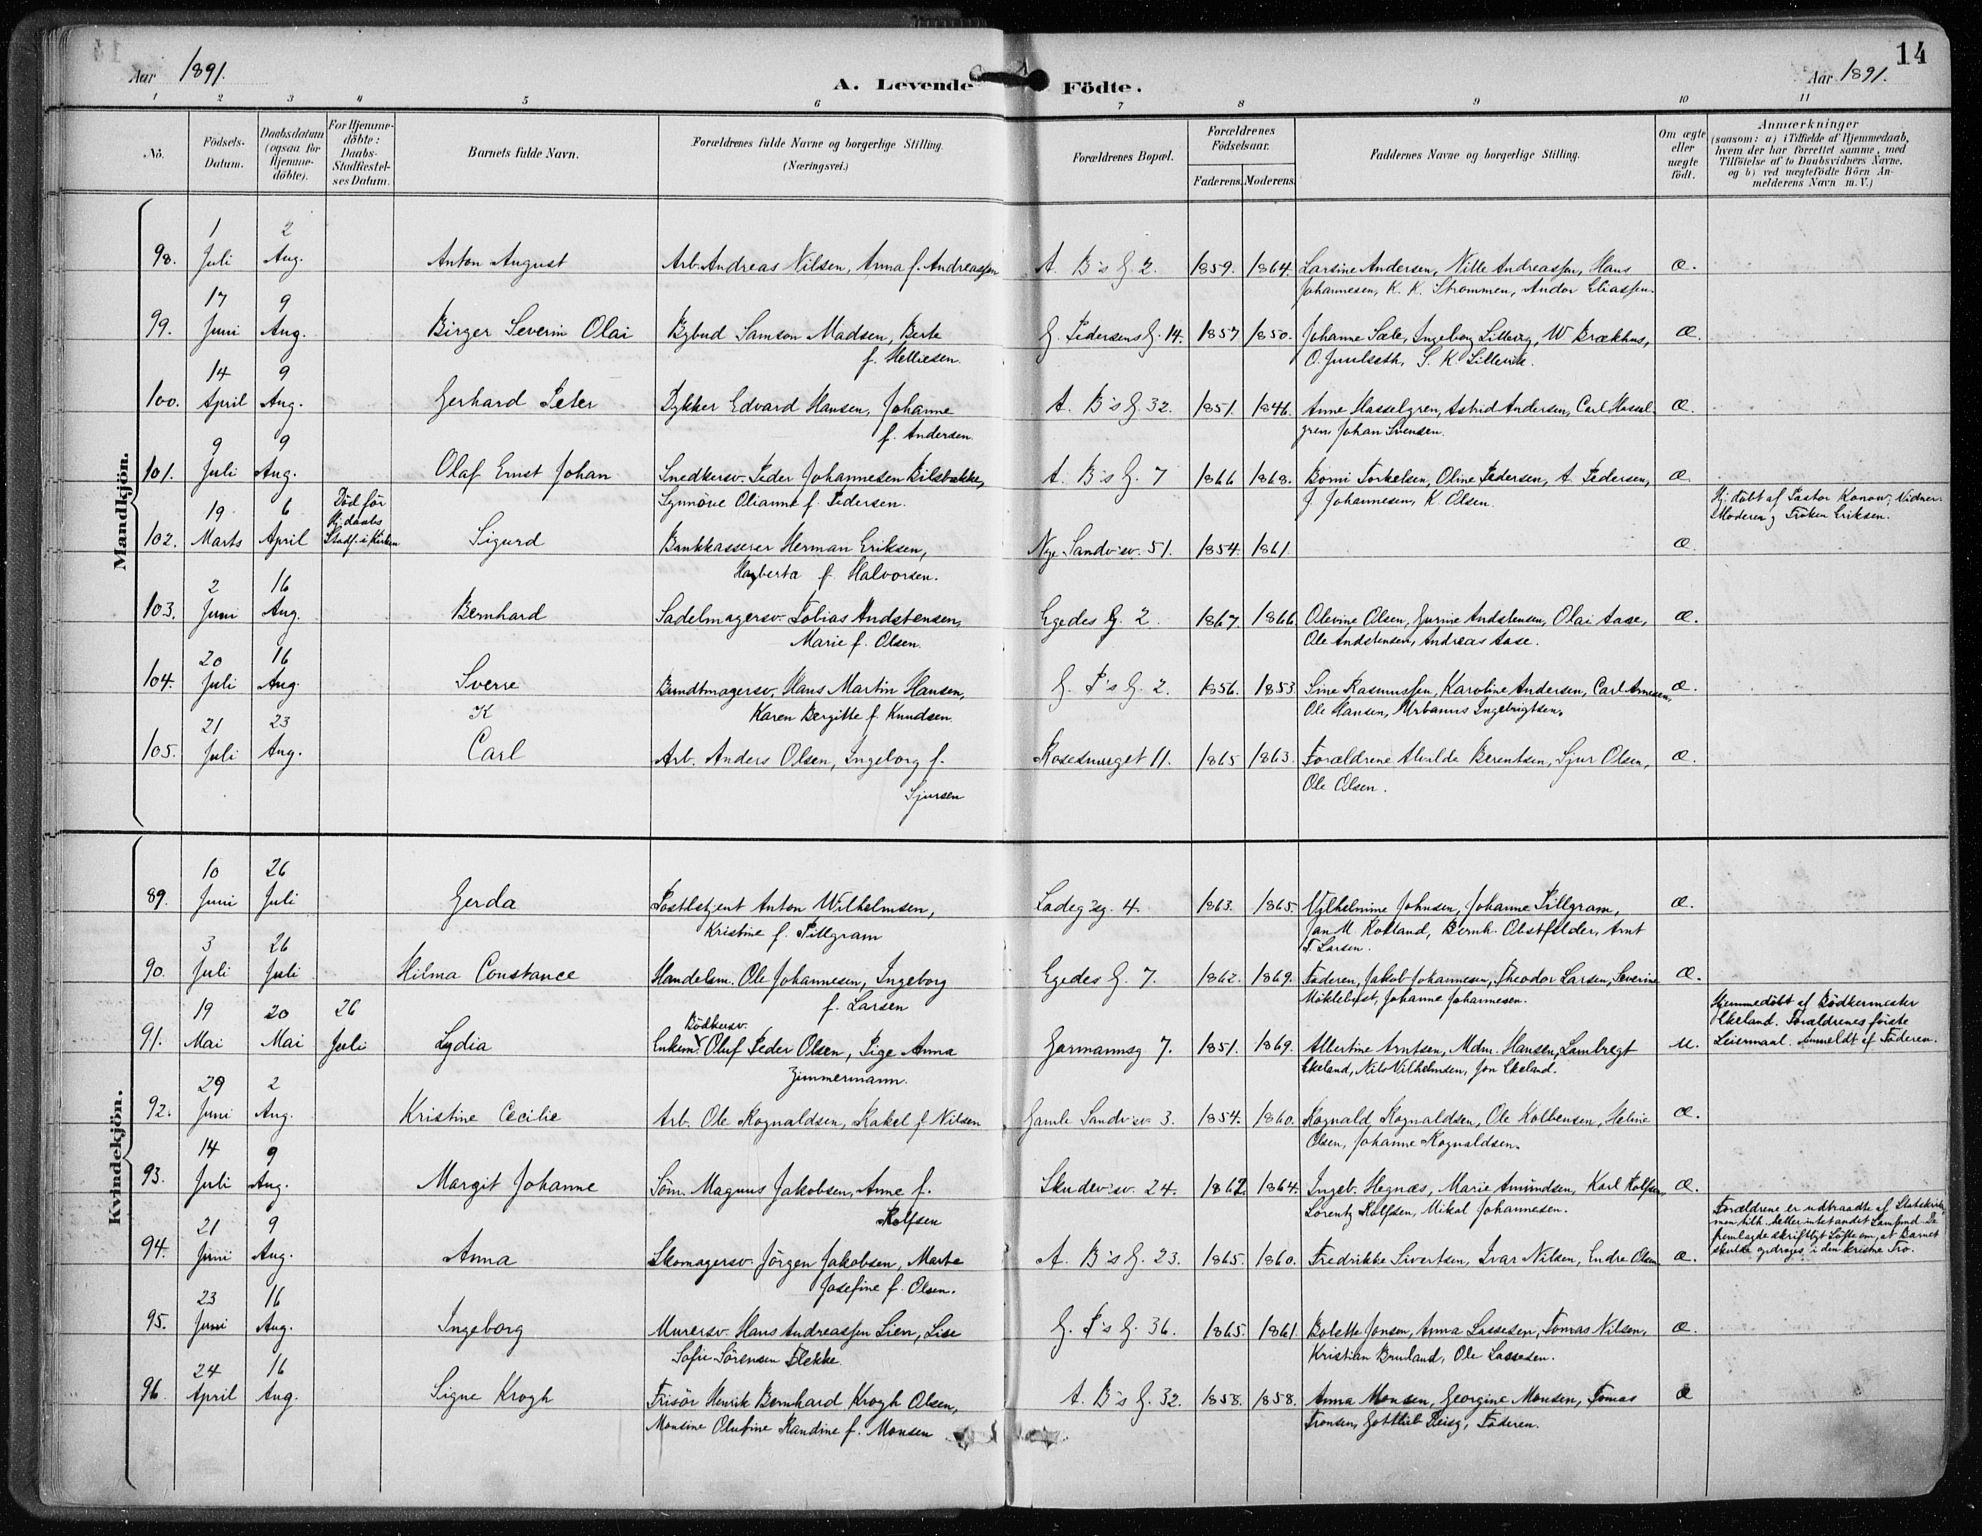 14
Aar 1891.
A. Levende Födte.
Aar 1891.
1 2 3 4 5 6 7 8 9 10 11
No.
Födsels-Datum.
Daabsdatum (ogsaa for Hjemme-döbte).
For Hjemme-döbte: Daabs-Stadfæstel-ses Datum.
Barnets fulde Navn.
Forældrenes fulde Navne og borgerlige Stilling. (Næringsvei.)
Forældrenes Bopæl.
Forældrenes Födselsaar.
Faderens. Moderens.
Faddernes Navne og borgerlige Stilling.
Om ægte eller uægte födt.
Anmærkninger
(saasom: a) i Tilfælde af Hjemmedaab,
hvem der har forrettet samme, med
Tilföielse af to Daabsvidners Navne,
og b) ved uægtefödte Börn An-
melderens Navn m. V.)
Mandkjön.
98. 1 Juli 2 Aug. Anton August Arb. Andreas Nilsen, Anna f. Andreassen A. B's G. 2. 1859. 1864. Larsine Andersen, Nille Andreassen, Hans Æ.
Johannesen, K. K. Strømmen, Andor Eliassen.
99. 17 Juni 9 Aug. Birger Severin Olai Bybud Samson Madsen, Berte G. Pedersens G. 14. 1857 1850. Johanne Sæle, Ingeborg Lillevig, W. Brækhus, Æ.
f. Helliesen. S. K. Lillevik.
100. 14 April 9 Aug. Gerhard Peter Dykker Edvard Hansen, Johanne A. B's G. 32. 1851. 1846. Anne Hasselgren, Astrid Andersen, Carl Hassel- Æ.
f. Andersen. gren, Johan Svensen.
101. 9 Juli 9 Aug. Olaf Ernst Johan Snedkersv. Peder Johannesen A. B's G. 7 1866 1868. Bomi Torkelsen, Oline Pedersen, A. Pedersen, Æ.
Synnöve Olianne f. Pedersen. J. Johannesen, K. Olsen.
102. 19 Marts 6 April Död för Hj.daabs Stadf. i Kirken Sigurd Bankkasserer Herman Eriksen, Nye Sandv'sv. 51. 1854. 1861. Æ. Hj. döbt af Pastor Konow, Vidner:
Moderen og Fröken Eriksen.
Hagberta f. Halvorsen.
103. 2 Juni 16 Aug. Bernhard Sadelmagersv. Tobias Andstensen, Egedes G. 2. 1867. 1866 Olevine Olsen, Gurine Andstensen, Olai Aase, Æ.
Marie f. Olsen. Ole Andstensen, Andreas Aase.
104. 20 Juli 16 Aug. Sverre Bundtmagersv. Hans Martin Hansen, G. P's G. 2. 1856. 1853. Sine Rasmussen, Karoline Andersen, Carl Arnesen, Æ.
Karen Bergitte f. Knudsen. Ole Hansen, Urbanus Ingebrigtsen.
105. 21 Juli 23 Aug. K Carl Arb. Anders Olsen, Ingeborg f. Rosesmuget 11. 1865 1863. Forældrene Alvilde Berentsen, Sjur Olsen, Æ.
Sjursen Ole Olsen.
Kvindekjön.
89. 10 Juni 26 Juli Gerda Postbetjent Anton Wilhelmsen, Ladeg'sg. 4. 1863. 1865. Vilhelmine Johnsen, Johanne Pillgram, Æ.
Kristine f. Pillgram Jan M. Rolland, Bernh. Obstfelder, Arnt
T. Larsen.
90. 3 Juli 26 Juli Hilma Constance Handelsm. Ole Johannesen, Ingeborg Egedes G. 7. 1862. 1869. Faderen, Jakob Johannesen, Theodor Larsen, Severine Æ.
f. Larsen Möklebust, Johanne Johannesen.
91. 19 Mai 20 Mai 26 Juli Lydia Enkem. Bödkersv. Oluf Peder Olsen, Pige Anna Garmannsg 7. 1851. 1869. Albertine Arntsen, Mdm. Hansen, Lambregt U. Hjemmedöbt af Bödkermester
Ekeland. Forældrenes förste
Leiermaal. Anmeldt af Faderen.
Zimmermann. Ekeland, Nils Vilhelmsen, Jon Ekeland.
92. 29 Juni 2 Aug. Kristine Cecilie Arb. Ole Rognaldsen, Rakel f. Nilsen Gamle Sandv'sv. 3. 1854. 1860. Rognald Rognaldsen, Ole Kolbensen, Heline Æ.
Olsen, Johanne Rognaldsen.
93. 14 Juli 9 Aug. Margit Johanne Söm. Magnus Jakobsen, Anne f. Skudev'sv. 24. 1862. 1864. Ingeb. Hegnæs, Marie Amundsen, Karl Rolfsen, Æ.
Rolfsen Lorentz Rolfsen, Mikal Johannesen.
94. 21 Juni 9 Aug. Anna Skomagersv. Jörgen Jakobsen, Marte A. B's G. 23. 1865. 1860. Fredrikke Sivertsen, Ivar Nilsen, Endre Olsen Æ. Forældrene er udtraadte af Statskirken,
men tilh. heller intet andet Samfund. De
fremlagde skriftligt Löfte om, at Barnet
skulde opdrages i den kristne Tro.
Josefine f. Olsen.
95. 23 Juni 16 Aug. Ingeborg Murersv. Hans Andreassen Lien, Lise G. P's G. 36. 1865. 1861 Bolette Jonsen, Anna Lassesen, Tomas Nilsen, Æ.
Sofie Sörensen Flekke. Kristian Bruland, Ole Lassesen.
96. 24 April 16 Aug. Signe Krogh Frisör Henrik Bernhard Krogh Olsen, A. B's G. 32. 1858. 1858. Anna Monsen, Georgine Monsen, Tomas Æ
Monsine Olufine Randine f. Monsen Tronsen, Gottlieb Reisg, Faderen.